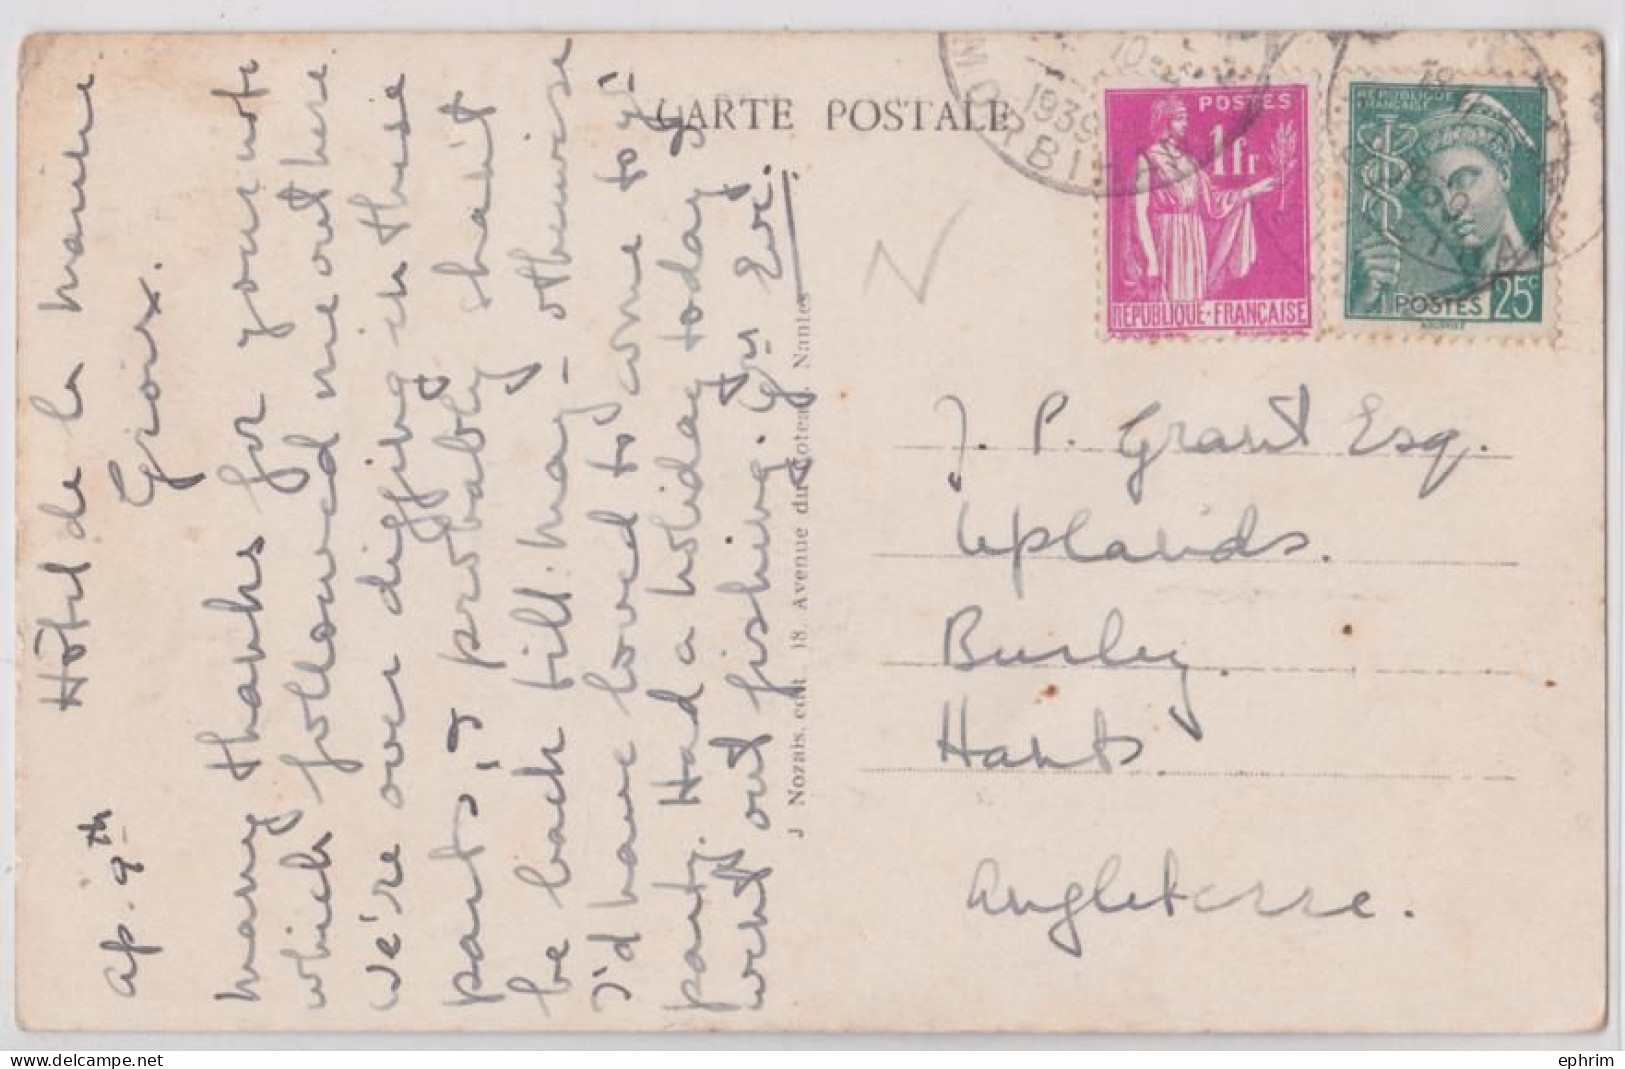 Hôtel de la Mairie
Ap. 9th
many thanks for your note
which followed me out here
We're over digging in these
parts, & probably shan't
be back till May - otherwise
I'd have loved to come to yr
party. Had a holiday today &
went out fishing. Yrs Evi.
CARTE POSTALE
J Nozais, edit 18, Avenue du Coteau, Nantes
1939
MORBIHAN
POSTES
1fr
REPUBLIQUE·FRANÇAISE
REPUBLIQUE
FRANÇAISE
1939
MORBIHAN
POSTES 25c
J. P. Grant Esq.
Uplands.
Burley.
Hants
Angleterre.
ephrim